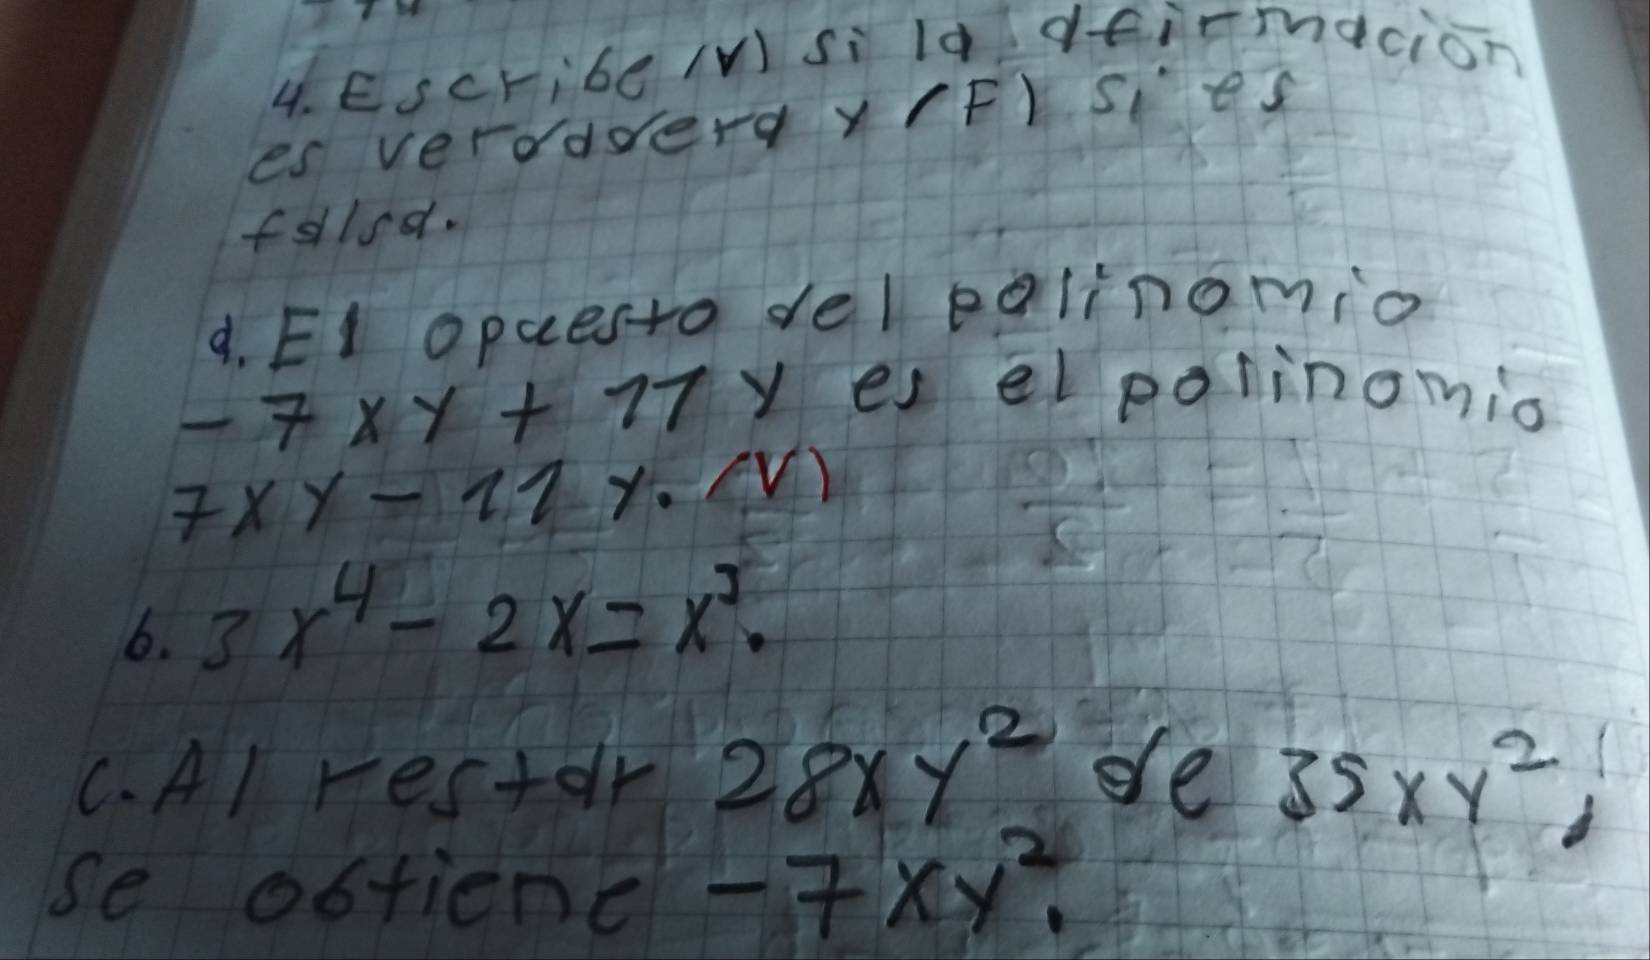 4. Escribe (V) si la afirmación
es verdadera y (F) si es
falsa.
a. El opuesto del polinomio
-7xy + 11y es el polinomio
7xy - 11y. (V)
b. 3x⁴ - 2x = x³.
c. Al restar 28xy² de 35xy²,
se obtiene -7xy².